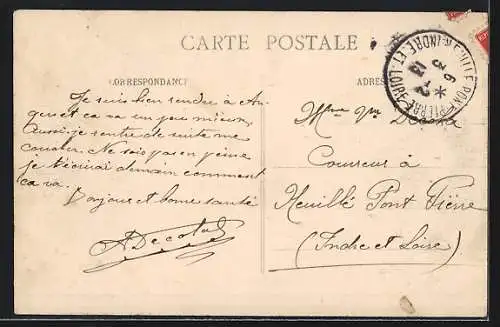 CARTE POSTALE
CORRESPONDANCE
ADRES
NEUILLE-PONT-PIERRE
INDRE-ET-LOIRE
6
3
13
Je suis bien rendu à
et ca va un peu mieux
Aussi je rentre de suite me
coucher. Ne sois pas en peine
je t'écrirai demain comment
ca va.
Bonjour et bonne santé
ADecotal
Mme Vve
Couvreur à
Neuillé Pont Pierre
(Indre et Loire)